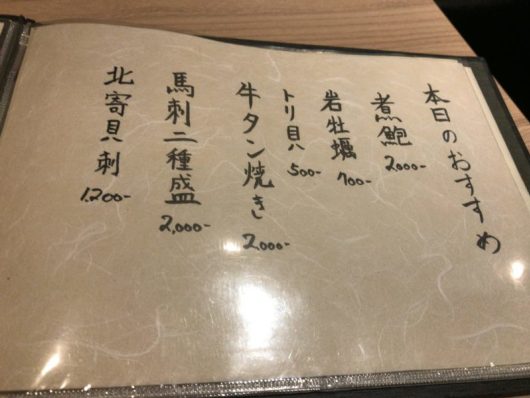 本日のおすすめ
煮鮑 2000-
岩牡蠣 700-
トリ貝 500-
牛タン焼き 2,000-
馬刺二種盛 2,000-
北寄貝刺 1,200-